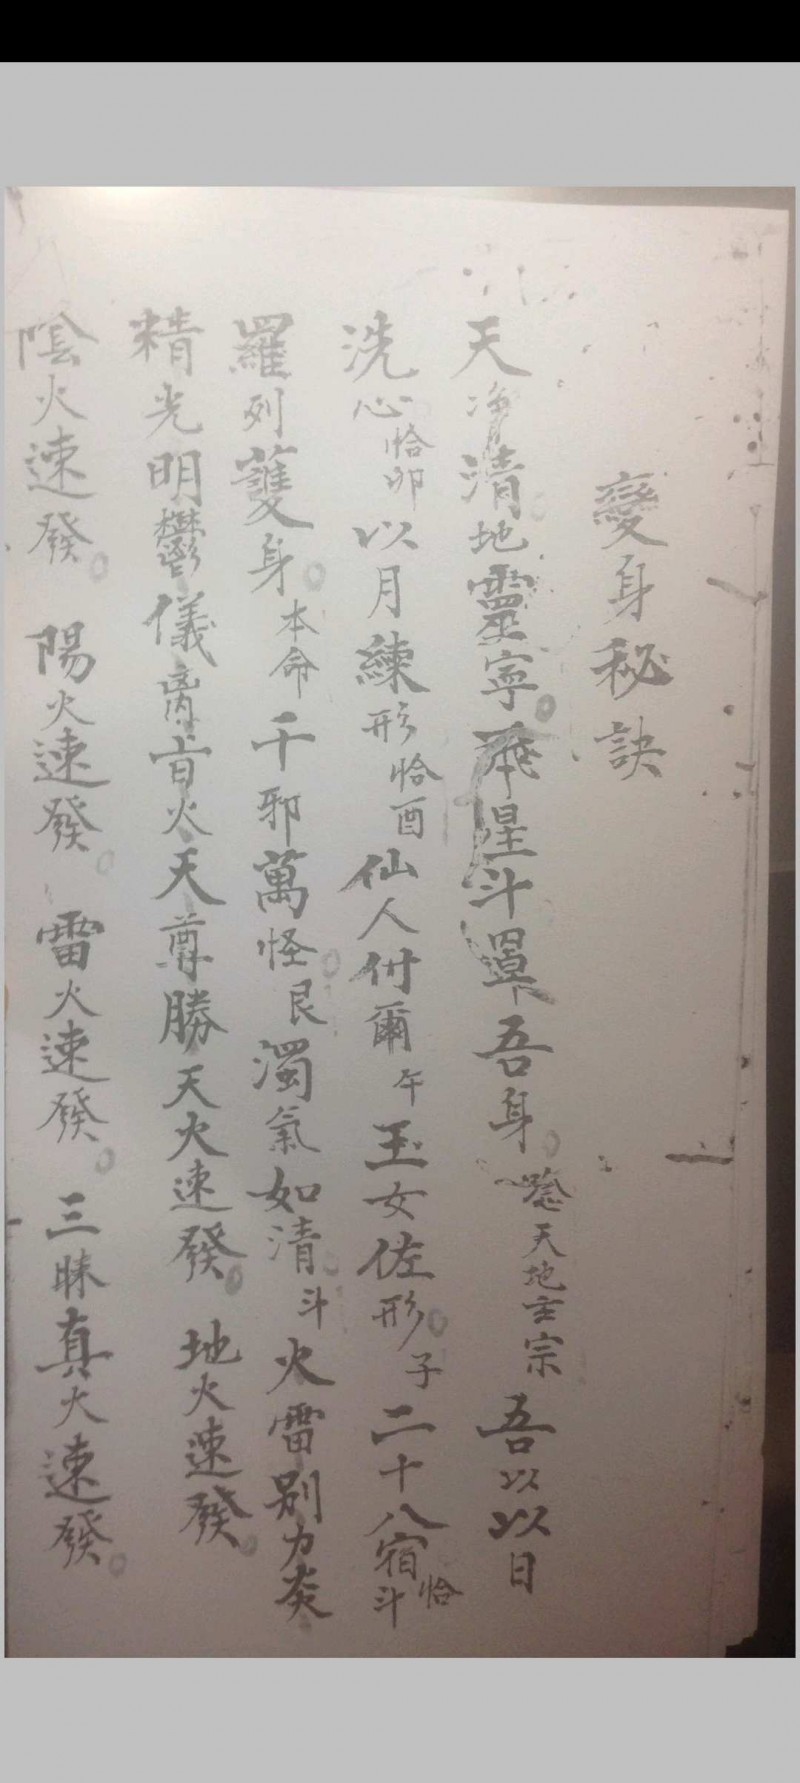 變身秘訣
天淨清地靈寧 星斗罩吾身 天地玄宗 吾以以日
洗心恰卯以月練形恰酉仙人付爾午玉女佐形子二十八宿恰斗
羅列護身本命千邪萬怪艮濁氣如清斗火雷别力炎
精光明鬱儀 火天尊勝天火速發 地火速發
陰火速發 陽火速發 雷火速發 三昧真火速發